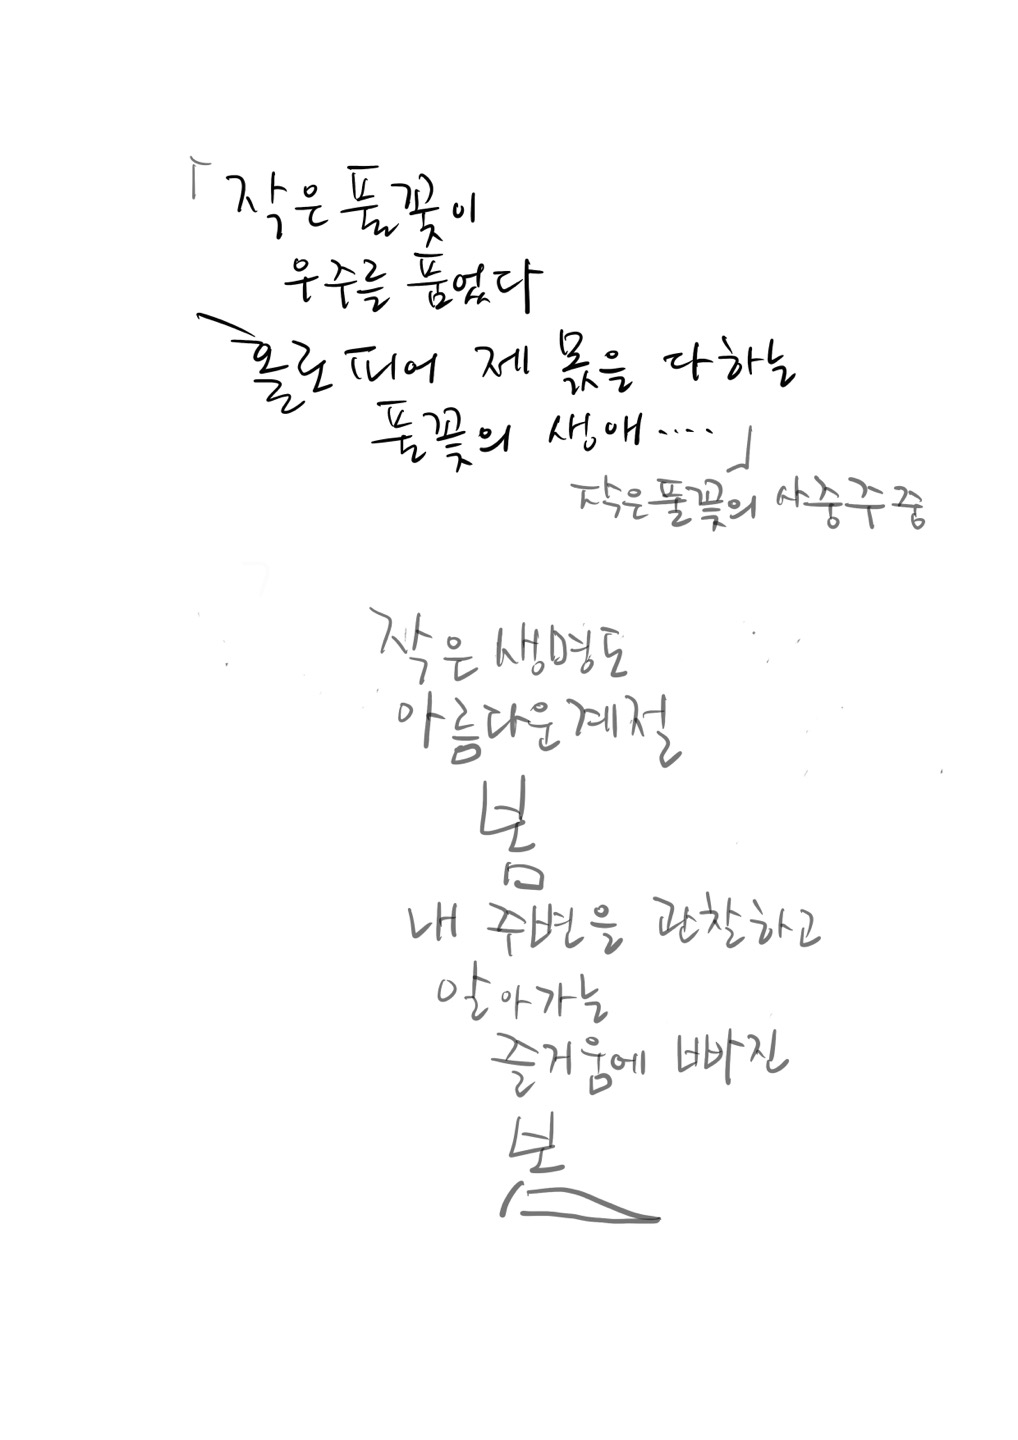 「작은풀꽃이
우주를 품었다
홀로 피어 제 몫을 다하는
풀꽃의 생애....」
작은풀꽃의 사중주 중
작은 생명도
아름다운 계절
봄
내 주변을 관찰하고
알아가는
즐거움에 빠진
봄